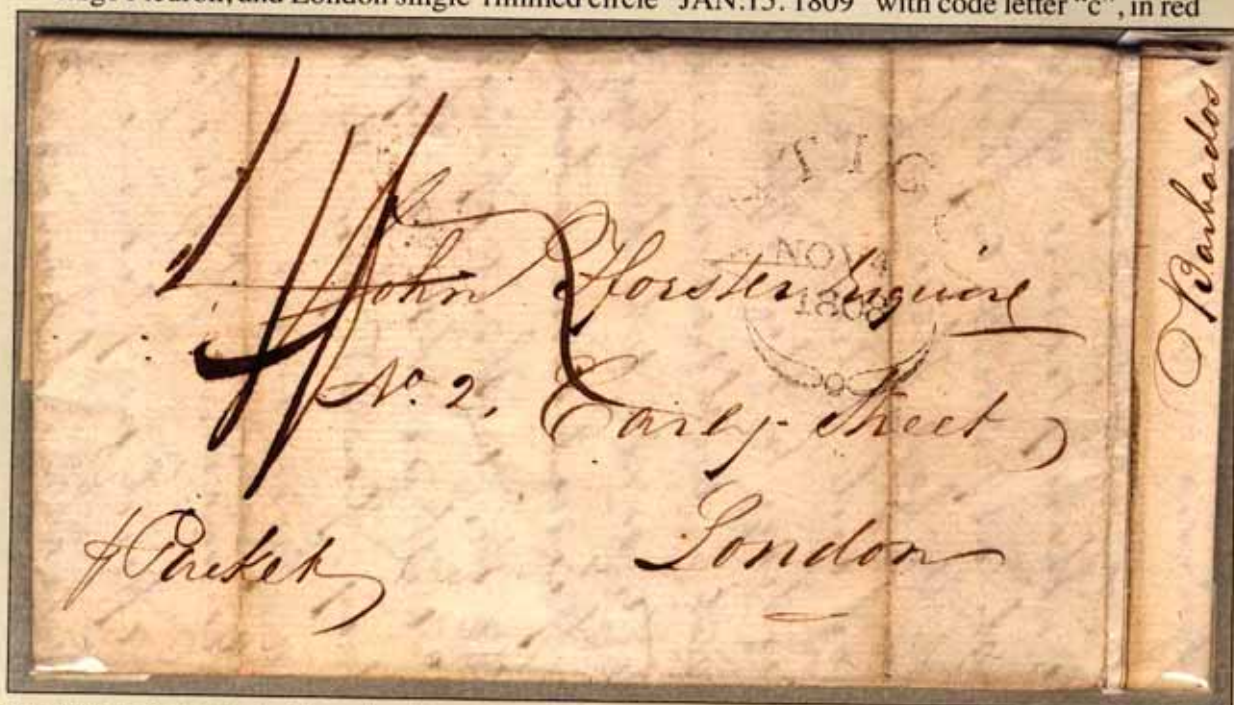 and London single-rimmed circle "JAN.15. 1809" with code letter "c", in red
TIG
NOV 4
1808
4/2
John Forster Esquire
No. 2, Carey Street
London
Packet
Barbados